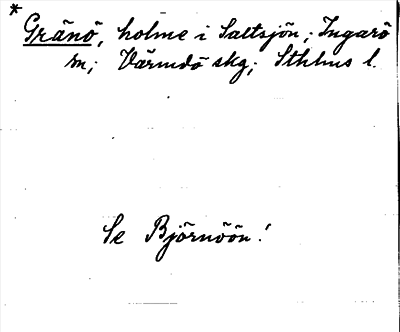 * Gränö, holme i Saltsjön; Ingarö
sn; Värmdö skg; Sthlms l.
Se Björnöön!